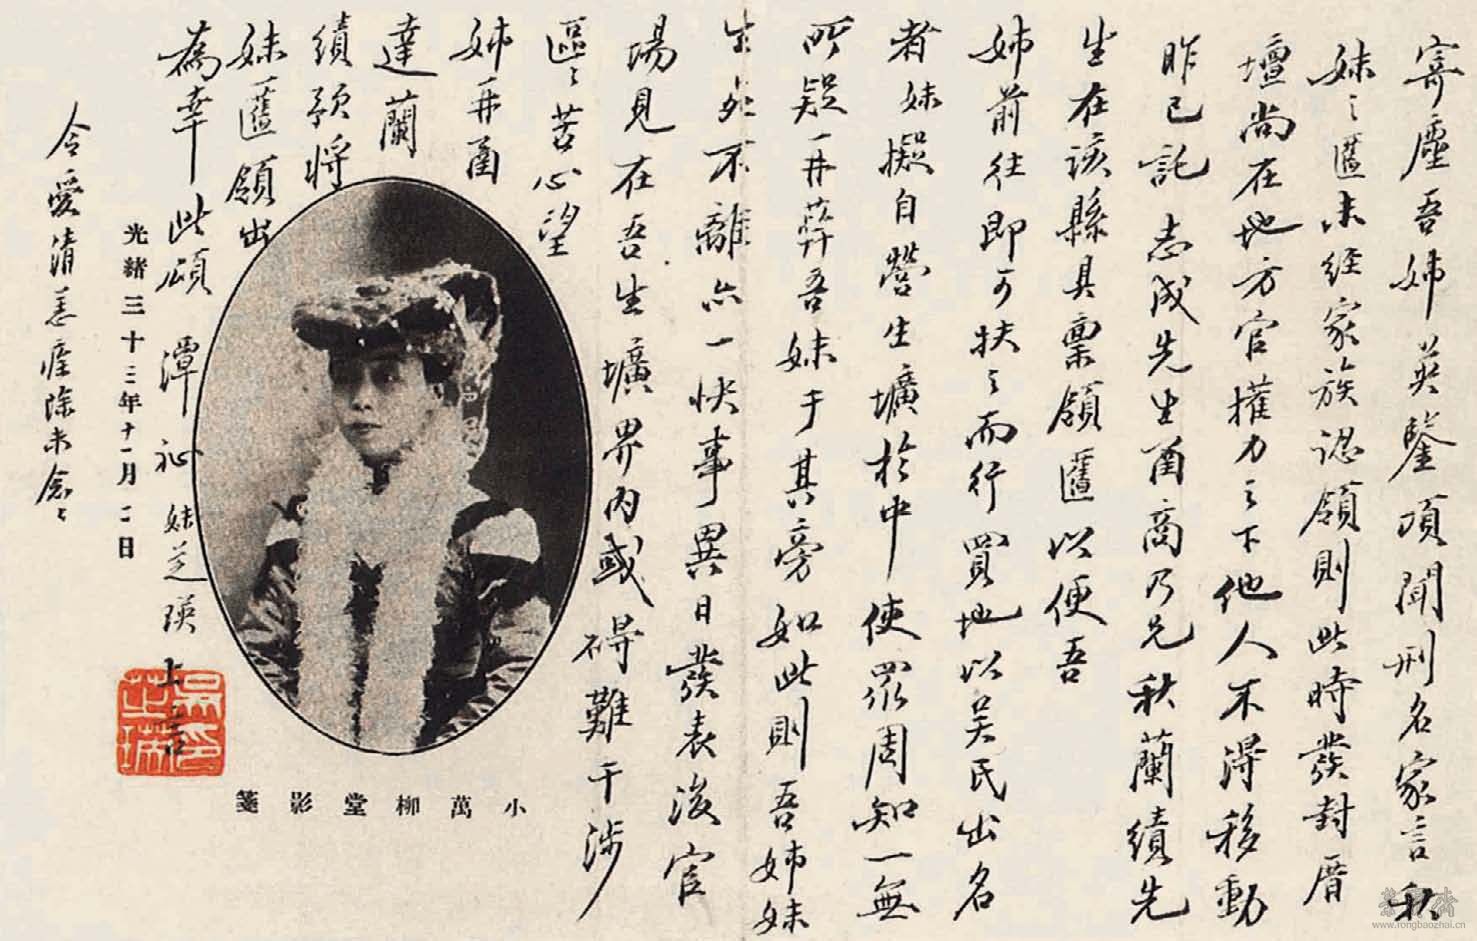 寄塵吾姊英鑒頃聞刑名家言秋
妹之匶未經家族認領則此時發封厝
壇尚在地方官權力之下他人不得移動
昨已託志成先生函商乃兄秋蘭績先
生在該縣具稟領匶以便吾
姊前往即可扶之而行買地以吳氏出名
者妹擬自營生壙於中使眾周知一無
所疑再葬吾妹于其旁如此則吾姊妹
生死不離亦一快事異日發表後官
場見在吾生壙界內或礙難干涉
區〻苦心望
姊再函
達蘭
績預將
妹匶領出
為幸此頌 潭祉 妹芝瑛上言
光緒三十三年十一月二日
令愛清恙痊除未念〻
小萬柳堂影箋
吳印芝瑛
榮寶齋
www.rongbaozhai.cn